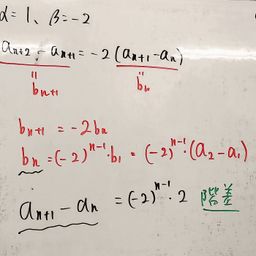 α = 1、β = -2
a_{n+2} - a_{n+1} = -2 (a_{n+1} - a_n)
‖ ‖
b_{n+1} b_n
b_{n+1} = -2b_n
b_n = (-2)^{n-1}・b_1 = (-2)^{n-1}・(a_2 - a_1)
a_{n+1} - a_n = (-2)^{n-1}・2 階差